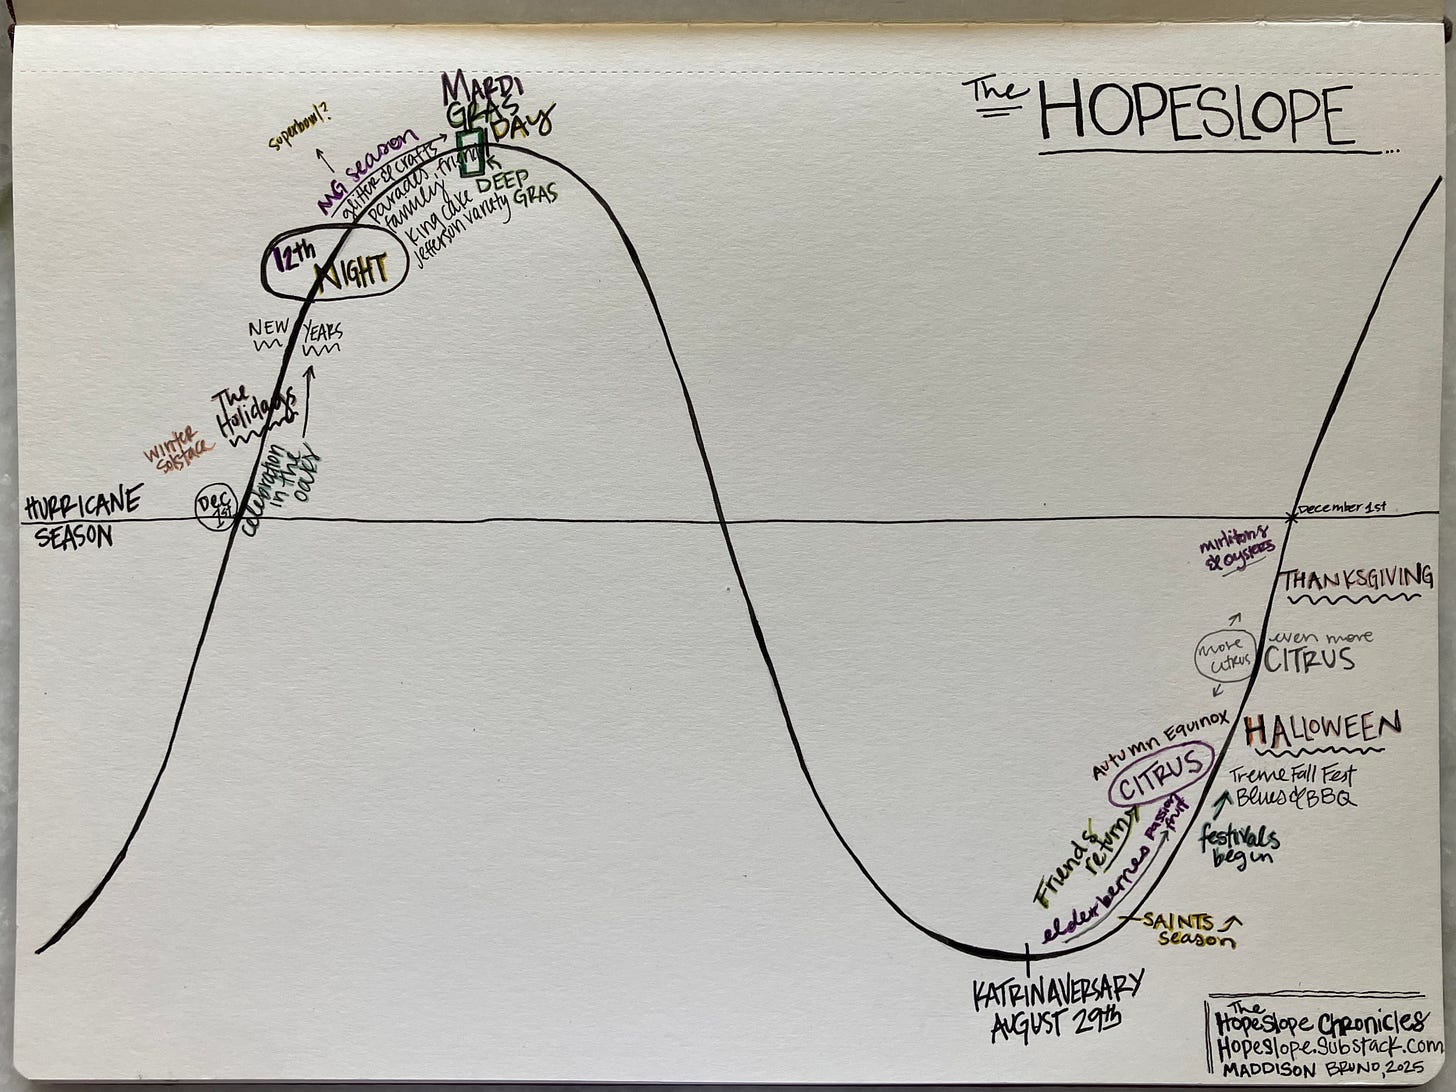 The HOPESLOPE...
MARDI
GRAS
DAY
Superbowl?
MG season
glitter & crafts
parades, friends
family
king cake
Jefferson variety
DEEP
GRAS
12th
NIGHT
NEW YEARS
The
Holidays
winter
solstace
celebration
in the
oaks
HURRICANE
SEASON
Dec
1st
December 1st
mirlitons
& oysters
THANKSGIVING
more
citrus
even more
CITRUS
Autumn Equinox
CITRUS
HALLOWEEN
Treme Fall Fest
Blues & BBQ
festivals
begin
Friends
return
elderberries
passion
fruit
SAINTS
season
KATRINAVERSARY
AUGUST 29th
The
Hopeslope Chronicles
Hopeslope.Substack.com
MADDISON BRUNO, 2025